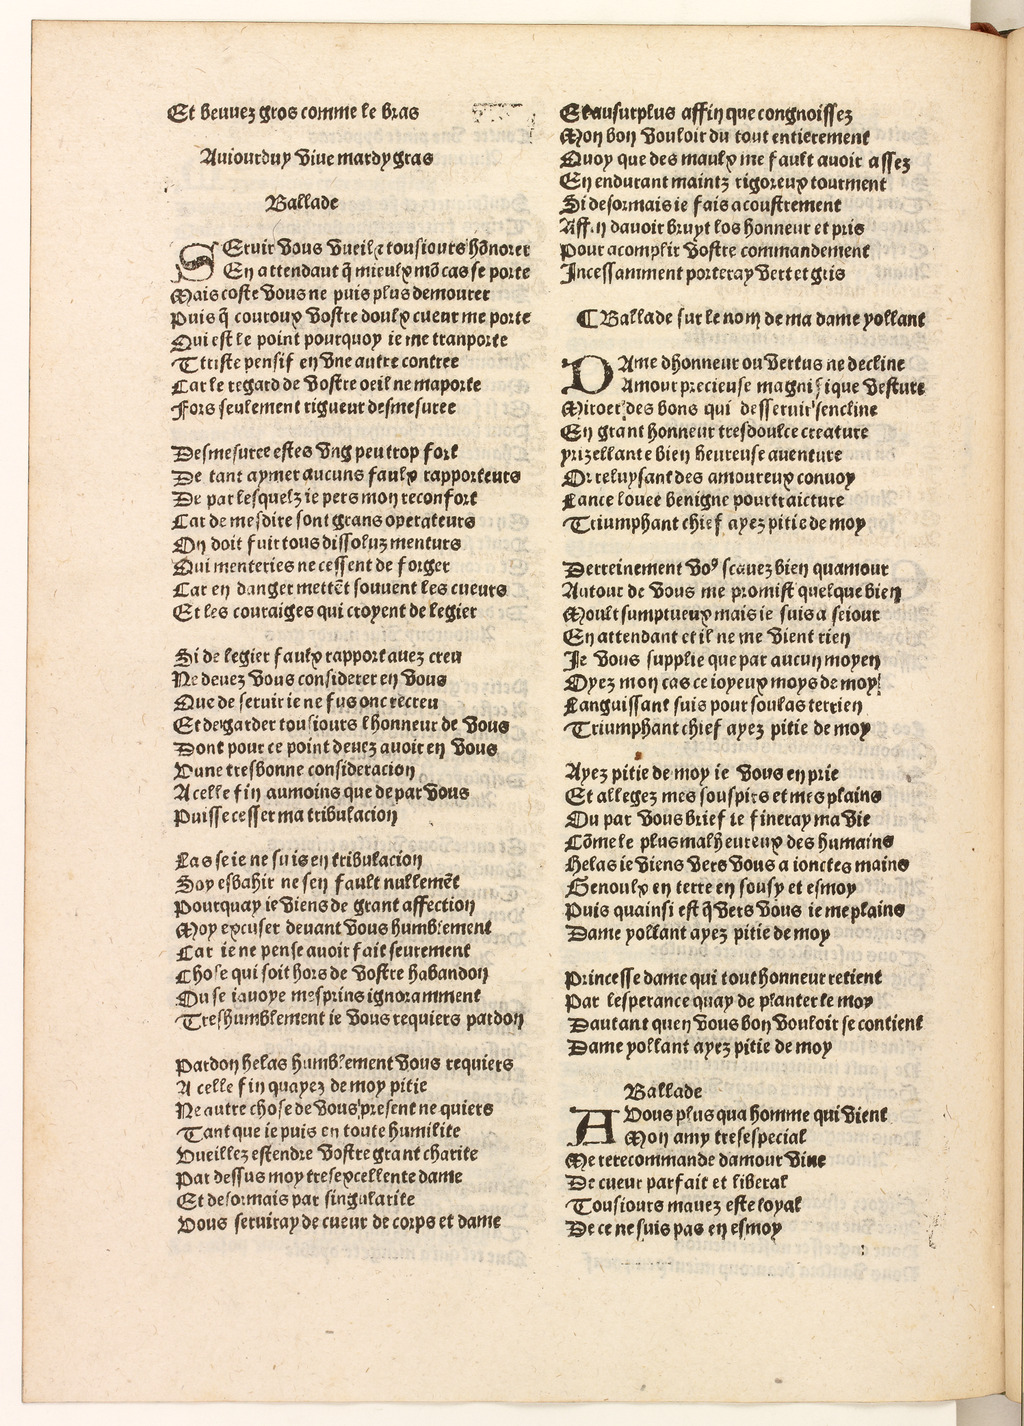 Et beuuez gros comme le bras
Auiourduy viue mardy gras
Ballade
SEruir vous vueil & tousiours hõnorer
En attendant q̃ mieulx mõ cas se porte
Mais coste vous ne puis plus demourer
Puis q̃ couroux vostre doulx cueur me porte
Qui est le point pourquoy ie me tranporte
Ttriste pensif en vne autre contree
Car le regard de vostre oeil ne maporte
Fors seulement rigueur desmesuree
Desmesuree estes vng peu trop fort
De tant aymer aucuns faulx rapporteurs
De par lesquelz ie pers mon reconfort
Car de mesdire sont grans operateurs
On doit fuir tous dissoluz menturs
Qui menteries ne cessent de forger
Car en danger mettẽt souuent les cueurs
Et les couraiges qui croyent de legier
Si de legier faulx rapport auez creu
Ne deuez vous considerer en vous
Que de seruir ie ne fus onc recreu
Et de garder tousiours lhonneur de vous
Dont pour ce point deuez auoir en vous
Dune tresbonne consideracion
A celle fin aumoins que de par vous
Puisse cesser ma tribulacion
Las se ie ne suis en tribulacion
Soy esbahir ne sen fault nullemẽt
Pourquay ie viens de grant affection
Moy excuser deuant vous humblement
Car ie ne pense auoir fait seurement
Chose qui soit hors de vostre habandon
Ou se iauoye mesprins ignoramment
Treshumblement ie vous requiers pardon
Pardon helas humblement vous requiers
A celle fin quayez de moy pitie
Ne autre chose de vous present ne quiers
Tant que ie puis en toute humilite
Vueillez estendre vostre grant charite
Par dessus moy tresexcellente dame
Et desormais par singularite
Vous seruiray de cueur de corps et dame
Et ausurplus affin que congnoissez
Mon bon vouloir du tout entierement
Quoy que des maulx me fault auoir assez
En endurant maintz rigoreux tourment
Si desormais ie fais acoustrement
Affin dauoir bruyt los honneur et pris
Pour acomplir vostre commandement
Incessamment porteray vert et gris
¶ Ballade sur le nom de ma dame yollant
DAme dhonneur ou vertus ne decline
Amour precieuse magnifique vesture
Miroer des bons qui desseruir sencline
En grant honneur tresdoulce creature
yrizellante bien heureuse auenture
Or reluysant des amoureux conuoy
Lance louee benigne pourtraicture
Triumphant chief ayez pitie de moy
Derreinement voꝰ scauez bien quamour
Autour de vous me promist quelque bien
Moult sumptueux mais ie suis a seiour
En attendant et il ne me vient rien
Je vous supplie que par aucun moyen
Oyez mon cas ce ioyeux moys de moy
Languissant suis pour soulas terrien
Triumphant chief ayez pitie de moy
Ayez pitie de moy ie vous en prie
Et allegez mes souspirs et mes plains
Ou par vous brief ie fineray ma vie
Cõme le plus malheureux des humains
Helas ie viens vers vous a ionctes mains
Genoulx en terre en sousy et esmoy
Puis quainsi est q̃ vers vous ie me plains
Dame yollant ayez pitie de moy
Princesse dame qui tout honneur retient
Par lesperance quay de planter le moy
Dautant quen vous bon vouloir se contient
Dame yollant ayez pitie de moy
Ballade
A Vous plus qua homme qui vient
Mon amy tresespecial
Me rerecommande damour viue
De cueur parfait et liberal
Tousiours mauez este loyal
De ce ne suis pas en esmoy